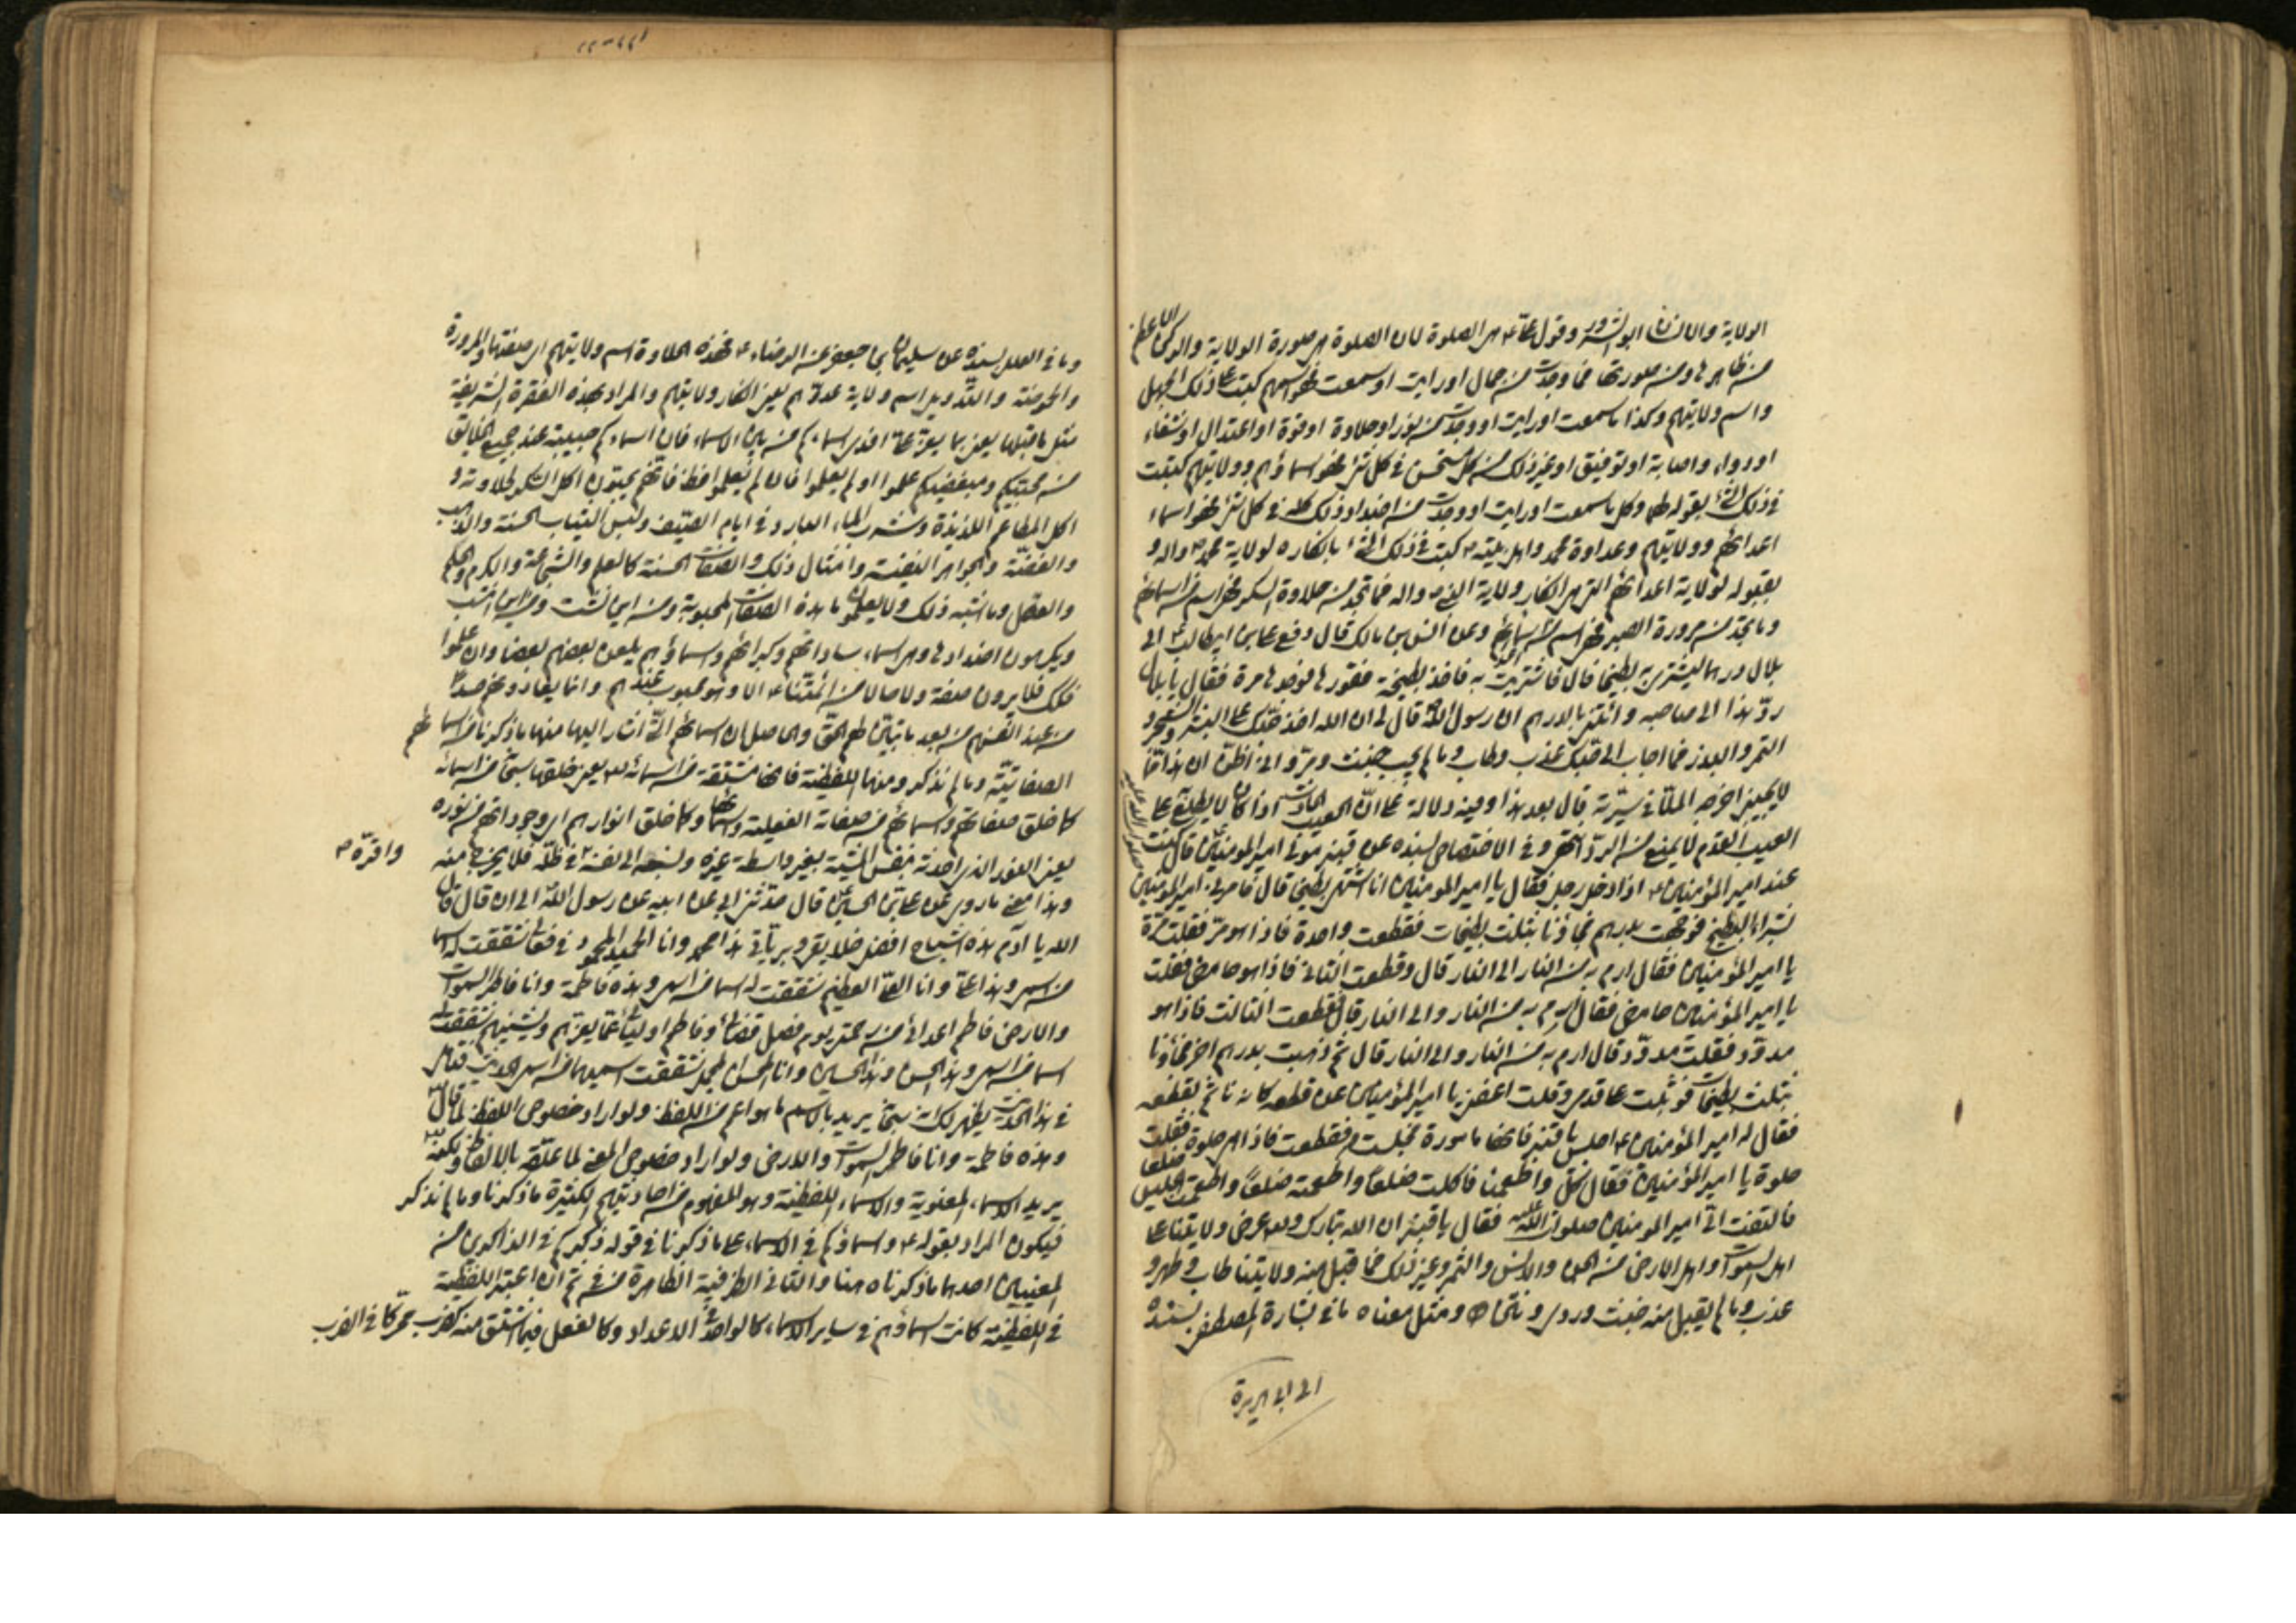 الولاية والانسان ابو الشرور وقول علي ع هي الصلوة لان الصلوة هي صورة الولاية والركن الاعظم
من ظاهرها ومن صورتها فما وجدت من جمال او رايت او سمعت فهو اسمهم كتب على ذلك الجميل
واسم ولايتهم وكذا ما سمعت او رايت او وجدت من نور او حلاوة او قوة او اعتدال او شفاء
او دواء واصابة او توفيق او غير ذلك من كل مستحسن في كل شئ فهو اسماؤهم وولايتهم كتبت
في ذلك الشئ بقوله لها وكل ما سمعت او رايت او وجدت من اضداد ذلك كله في كل شئ فهو اسماء
اعدائهم وولايتهم وعداوة محمد واهل بيته ص كتبت في ذلك الشئ بانكاره لولاية محمد ص واله و
بقبوله لولاية اعدائهم التي هي انكار ولاية النبي ص واله فما تجد من حلاوة السكر فهي اسم من اسمائهم
وما تجد من مرورة الصبر فهي اسم من اسماء وعن انس بن مالك قال دفع علي بن ابيطالب ع الى
بلال درهما ليشتري به بطيخا قال فاشتريت به فاخذ بطيخة فقورها فوجدها مرة فقال يا بلال
ردّ هذا الى صاحبه وائتني بالدرهم ان رسول الله ص قال لي ان الله اخذ حبّك على البشر والشجر و
الثمر والبذر فما اجاب الى حبّك عذب وطاب وما لم يجب خبث ومرّ واني اظنّ ان هذا ممّا
لا يحبني اخرجه الملّا في سيرته قال بعد هذا وفيه دلالة على انّ العيب الحادث اذا كان لا يطلع على
العيب القديم لا يمنع من الردّ انتهى وفي الاختصاص بسنده عن قنبر مولى امير المومنين قال كنت
عند امير المؤمنين ع اذ دخل رجل فقال يا امير المومنين انا اشتهي بطيخا قال فامرني امير المؤمنين
بشراء البطيخ فوجهت بدرهم فجاؤنا بثلث بطيخات فقطعت واحدة فاذا هو مرّ فقلت مرّة
يا امير المؤمنين فقال ارم به من النار الى النار قال وقطعت الثاني فاذا هو حامض فقلت
يا امير المؤمنين حامض فقال ارم به من النار والى النار قال فقطعت الثالث فاذا هو
مدوّد فقلت مدوّد قال ارم به من النار والى النار قال ثم ذهبت بدرهم اخر فجاؤنا
بثلث بطيخات فوثبت على قدمي وقلت اعفني يا امير المؤمنين عن قطعه كانه تاثم بقطعه
فقال له امير المؤمنين ع اجلس يا قنبر فانها مامورة فجلست فقطعت فاذا هي حلوة فقلت
حلوة يا امير المؤمنين فقال كل واطعمنا فاكلت ضلعاً واطعمته ضلعاً واطعمت الجليس ضلعا
فالتفت اليّ امير المومنين صلوات الله عليه فقال يا قنبر ان الله تبارك وتع عرض ولايتنا على
اهل السموات واهل الارض من الجن والانس والثمر وغير ذلك فما قبل منه ولايتنا طاب وطهر و
عذب وما لم يقبل منه خبث وردى ونتن ومثل معناه ما في بشارة المصطفى بسنده
الى ابي هريرة
وما في العلل بسنده عن سليمان بن جعفر عن الرضاء ع فهذه الحلاوة اسم ولايتهم اي صفتها والمرورة
والحموضة والتدويد اسم ولاية عدوّهم يعني انكار ولايتهم والمراد بهذه الفقرة الشريفة
مثل ما قبلها يعني بما يعزّ علي افدي اسماءكم من بين الاسماء فان اسماءكم حبيبة عند جميع الخلائق
من محبّيكم ومبغضيكم علموا او لم يعلموا فان لم يعلموا فظ فانهم يحبّون اكل السكر لحلاوته و
اكل المطاعم اللذيذة وشرب الماء البارد في ايام الصّيف ولبس الثياب الحسنة والذهب
والفضّة والجواهر النفيسة وامثال ذلك والصفات الحسنة كالعلم والشجاعة والكرم والحلم
والعقل وما اشبه ذلك ولا يعلمون ما هذه الصفات المحبوبة ومن اين نشت
ويكرهون اضدادها وهي اسماء ساداتهم وكبرائهم واسماؤهم يلعن بعضهم بعضا وان علموا
فلك فلا يرون صفة ولا حالا من ائمتنا ع الا وهو محبوب عندهم وانما يعادونهم حسدا
من عند انفسهم من بعد ما تبيّن لهم الحقّ والحاصل ان اسمائهم التي اشار اليها منها ما ذكرنا من اسمائهم
الصفاتيّة وما لم نذكر ومنها اللفظية فانها مشتقة من اسمائه تع يعني خلقها سبحانه من اسمائه
كما خلق صفاتهم واسمائهم من صفاته الفعلية واسمائها وكما خلق انوارهم اي وجوداتهم من نوره
يعني النور الذي احدثه بنفس المشيّة بغير واسطة غيره ونسبه الى نفسه في ظلّه فلا يخرج منه
واقرّه ص
وهذا معنى ما روي عن علي بن الحسين قال حدثني ابي عن ابيه عن رسول الله الى ان قال قال
الله يا ادم هذه اشباح افضل خلايقي وبريّاتي هذا محمد وانا الحميد المحمود في فعالي شققت له اسما
من اسمي وهذا علي وانا العليّ العظيم شققت له اسما من اسمي وهذه فاطمة وانا فاطر السموات
والارض فاطم اعدائي من رحمتي يوم فصل قضائي وفاطم اوليائي عمّا يعرّهم ويشينهم فشققت لها
اسما من اسمي وهذا الحسن وهذا الحسين وانا المحسن المجمل شققت اسميهما من اسمي الحديث
في هذا الحديث يظهر لك انه سبحانه يريد بالاسم ما هو اعم من اللفظ ولو اراد خصوص اللفظ لما قال
وهذه فاطمة وانا فاطر السموات والارض ولو اراد خصوص المعنى لما علّقه بالالفاظ ولكنه
يريد الاسماء المعنوية والاسماء اللفظية وهو المفهوم من احاديثهم الكثيرة ما ذكرنا وما لم نذكر
فيكون المراد بقوله ع واسماؤكم في الاسماء على ما ذكرنا في قوله ذكركم في الذاكرين من
المعنيين احدهما ما ذكرناه هنا والثاني الظرفية الظاهرة من في ثم ان اعتبر اللفظية
في اللفظية كانت اسماؤهم في ساير الاسماء كالواحد في الاعداد وكالفعل فيما اشتق منه كضرب محرّكا في الضرب